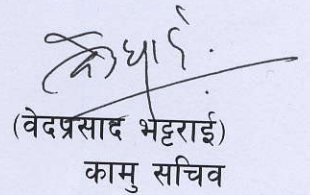 (वेदप्रसाद भट्टराई)
कामु सचिव